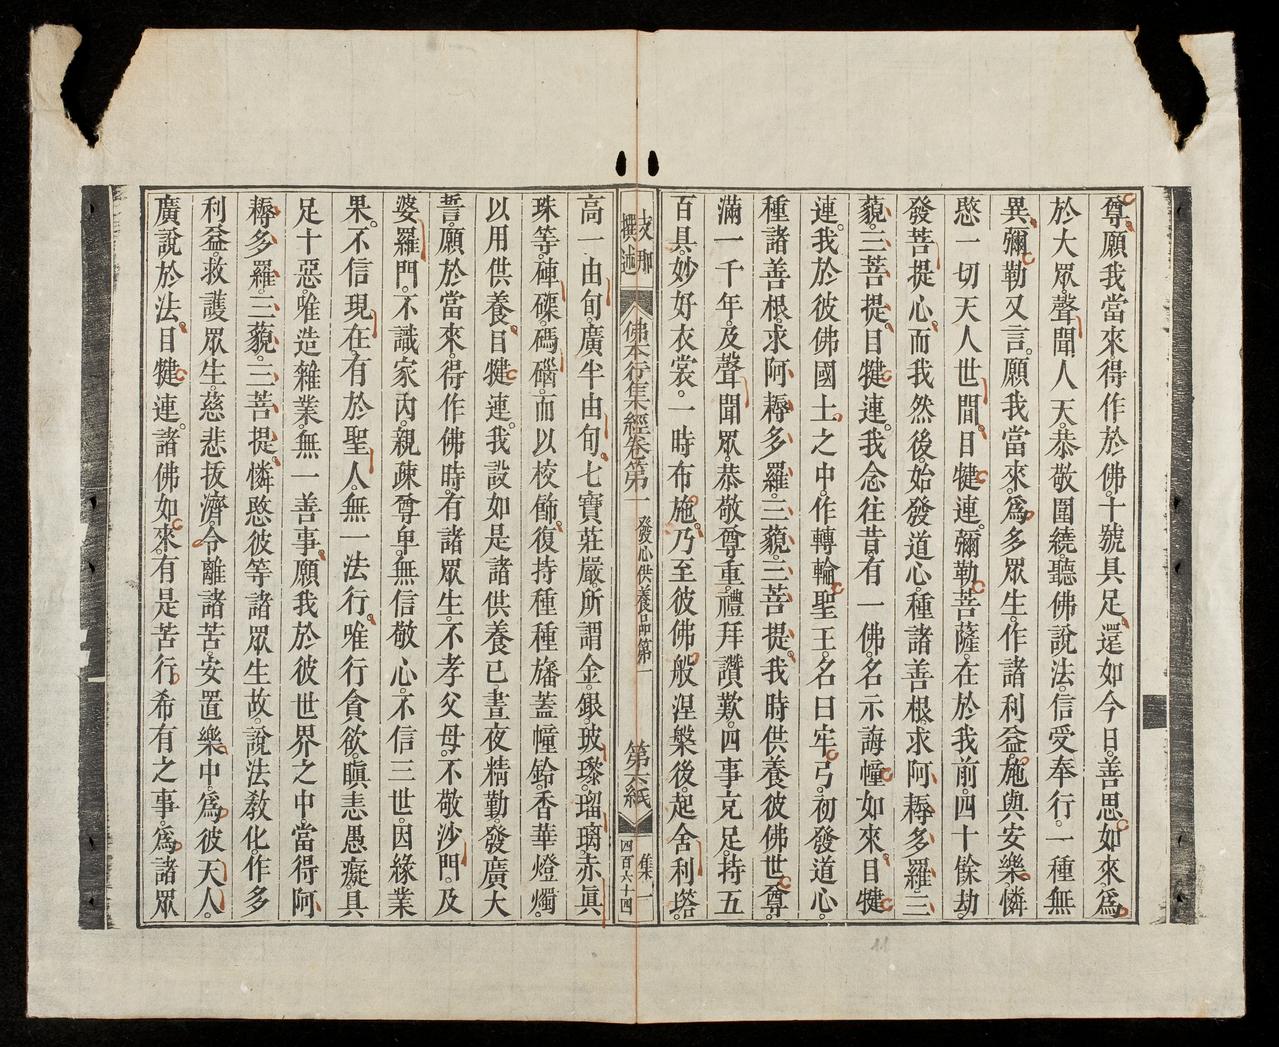 尊。願我當來得作於佛。十號具足。還如今日。善思如來。爲
於大眾聲聞人天。恭敬圍繞。聽佛說法。信受奉行。一種無
異。彌勒又言。願我當來。爲多眾生。作諸利益。施與安樂。憐
愍一切天人世間。目犍連。彌勒菩薩。在於我前。四十餘劫。
發菩提心。而我然後。始發道心。種諸善根。求阿耨多羅。三
藐。三菩提。目犍連。我念往昔。有一佛。名示誨幢如來。目犍
連。我於彼佛國土之中。作轉輪聖王。名曰牢弓。初發道心。
種諸善根。求阿耨多羅。三藐。三菩提。我時供養彼佛世尊。
滿一千年。及聲聞眾。恭敬尊重。禮拜讚歎。四事充足。持五
百具。妙好衣裳。一時布施。乃至彼佛般涅槃後。起舍利塔。
支那撰述 佛本行集經卷第一 發心供養品第一 第六紙 集一 四百六十四
高一由旬。廣半由旬。七寶莊嚴。所謂金。銀。玻瓈。瑠璃。赤眞
珠等。硨磲。碼碯。而以校飾。復持種種旛蓋幢鈴。香華燈燭。
以用供養。目犍連。我設如是諸供養已。晝夜精勤。發廣大
誓。願於當來。得作佛時。有諸眾生。不孝父母。不敬沙門。及
婆羅門。不識家內。親疎尊卑。無信敬心。不信三世。因緣業
果。不信現在。有於聖人。無一法行。唯行貪欲。瞋恚愚癡。具
足十惡。唯造雜業。無一善事。願我於彼世界之中。當得阿
耨多羅。三藐。三菩提。憐愍彼等諸眾生故。說法教化。作多
利益。救護眾生。慈悲拔濟。令離諸苦。安置樂中。爲彼天人。
廣說於法。目犍連。諸佛如來。有是苦行。希有之事。爲諸眾
11